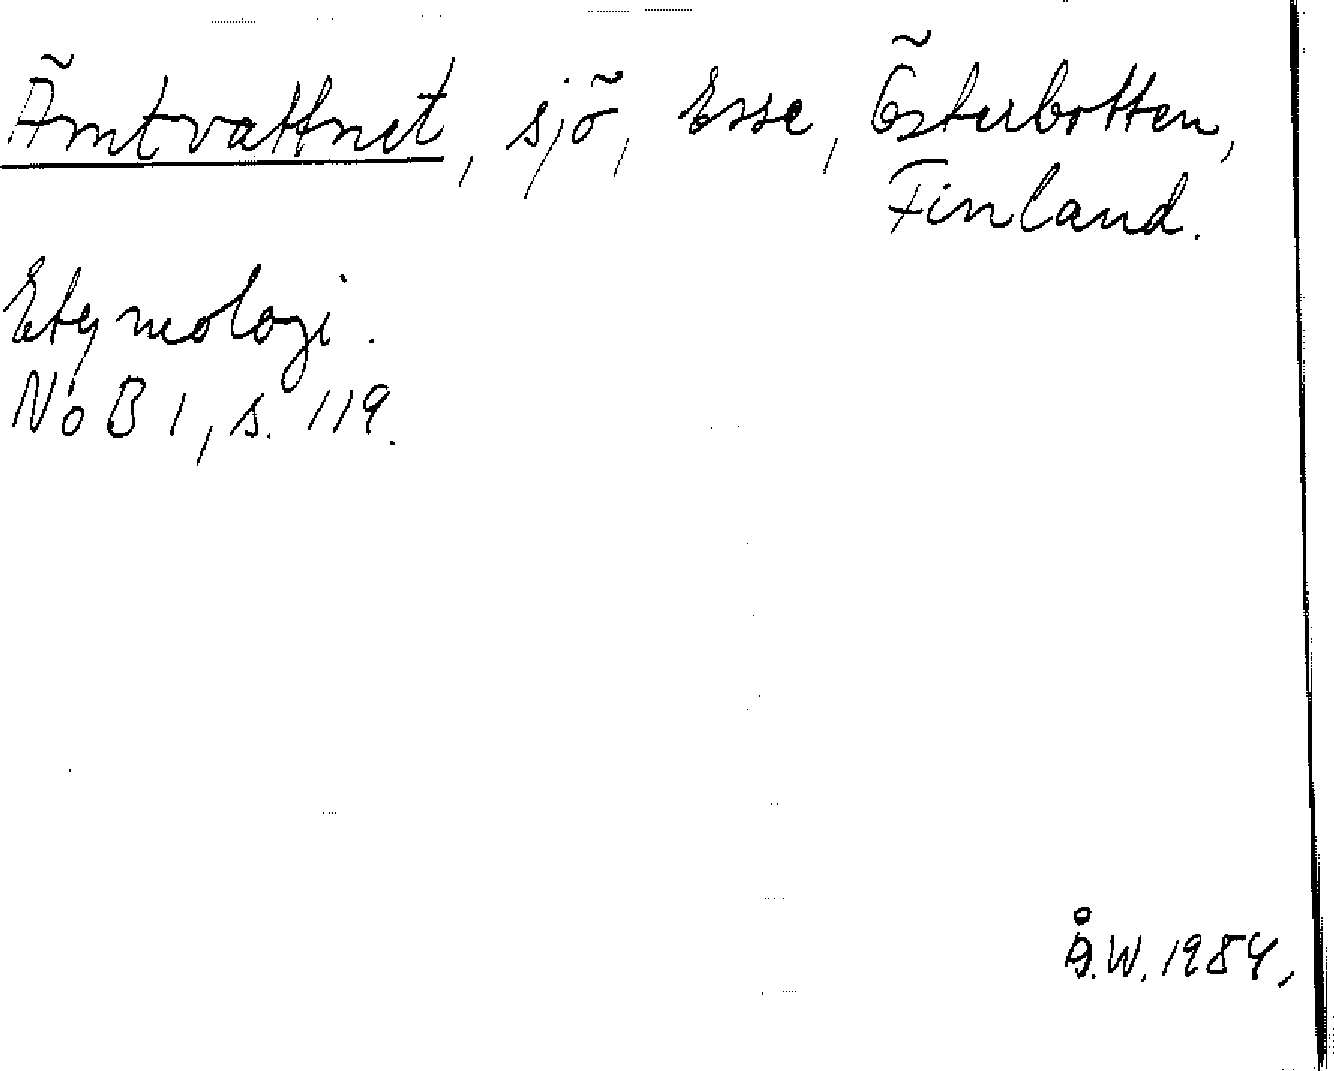 Ämtvattnet, sjö, Esse, Österbotten,
Finland.
Etymologi.
NoB 1, s. 119.
Å.W. 1984.